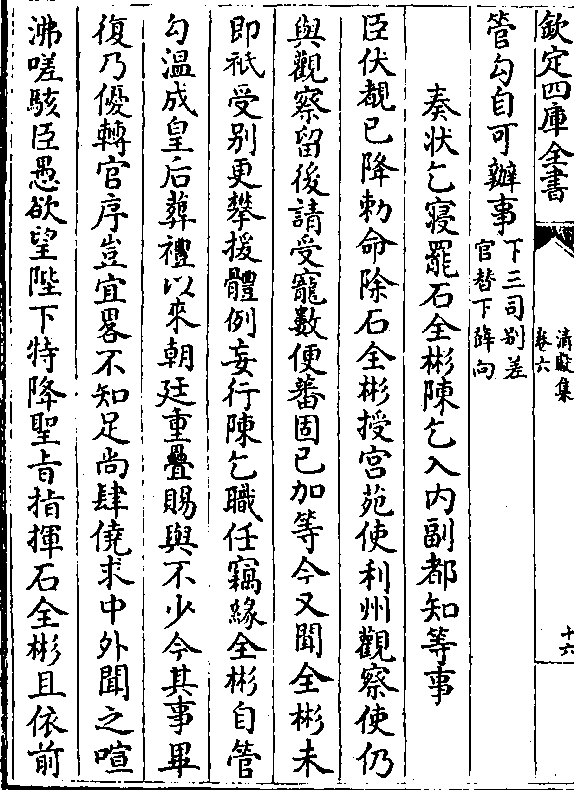 欽定四庫全書
清獻集
卷六
十六
管勾自可辦事下三司别差
官替下薛向
奏狀乞寢罷石全彬陳乞入内副都知等事
臣伏覩已降勅命除石全彬授宫苑使利州觀察使仍
與觀察留後請受寵數便蕃固已加等今又聞全彬未
即祇受别更攀援體例妄行陳乞職任竊緣全彬自管
勾温成皇后葬禮以來朝廷重疊賜與不少今其事畢
復乃優轉官序豈宜畧不知足尚肆僥求中外聞之喧
沸嗟駭臣愚欲望陛下特降聖㫖指揮石全彬且依前